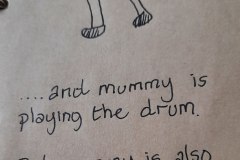 ....and mummy is
playing the drum.
is also